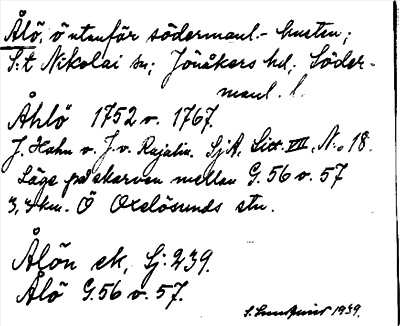 Ålö, ö utanför södermanl.- kusten;
S:t Nikolai sn; Jönåkers hd, Söder-
manl. l.
Åhlö 1752 o. 1767.
J. Hahn o. J. v. Rajalin. SjA, Litt. VII, N:o 18.
Läge på skarven mellan G.56 o. 57
3,4 km. Ö Oxelösunds stn.
Ålön ek, Sj: 239.
Ålö G.56 o. 57.
1939.